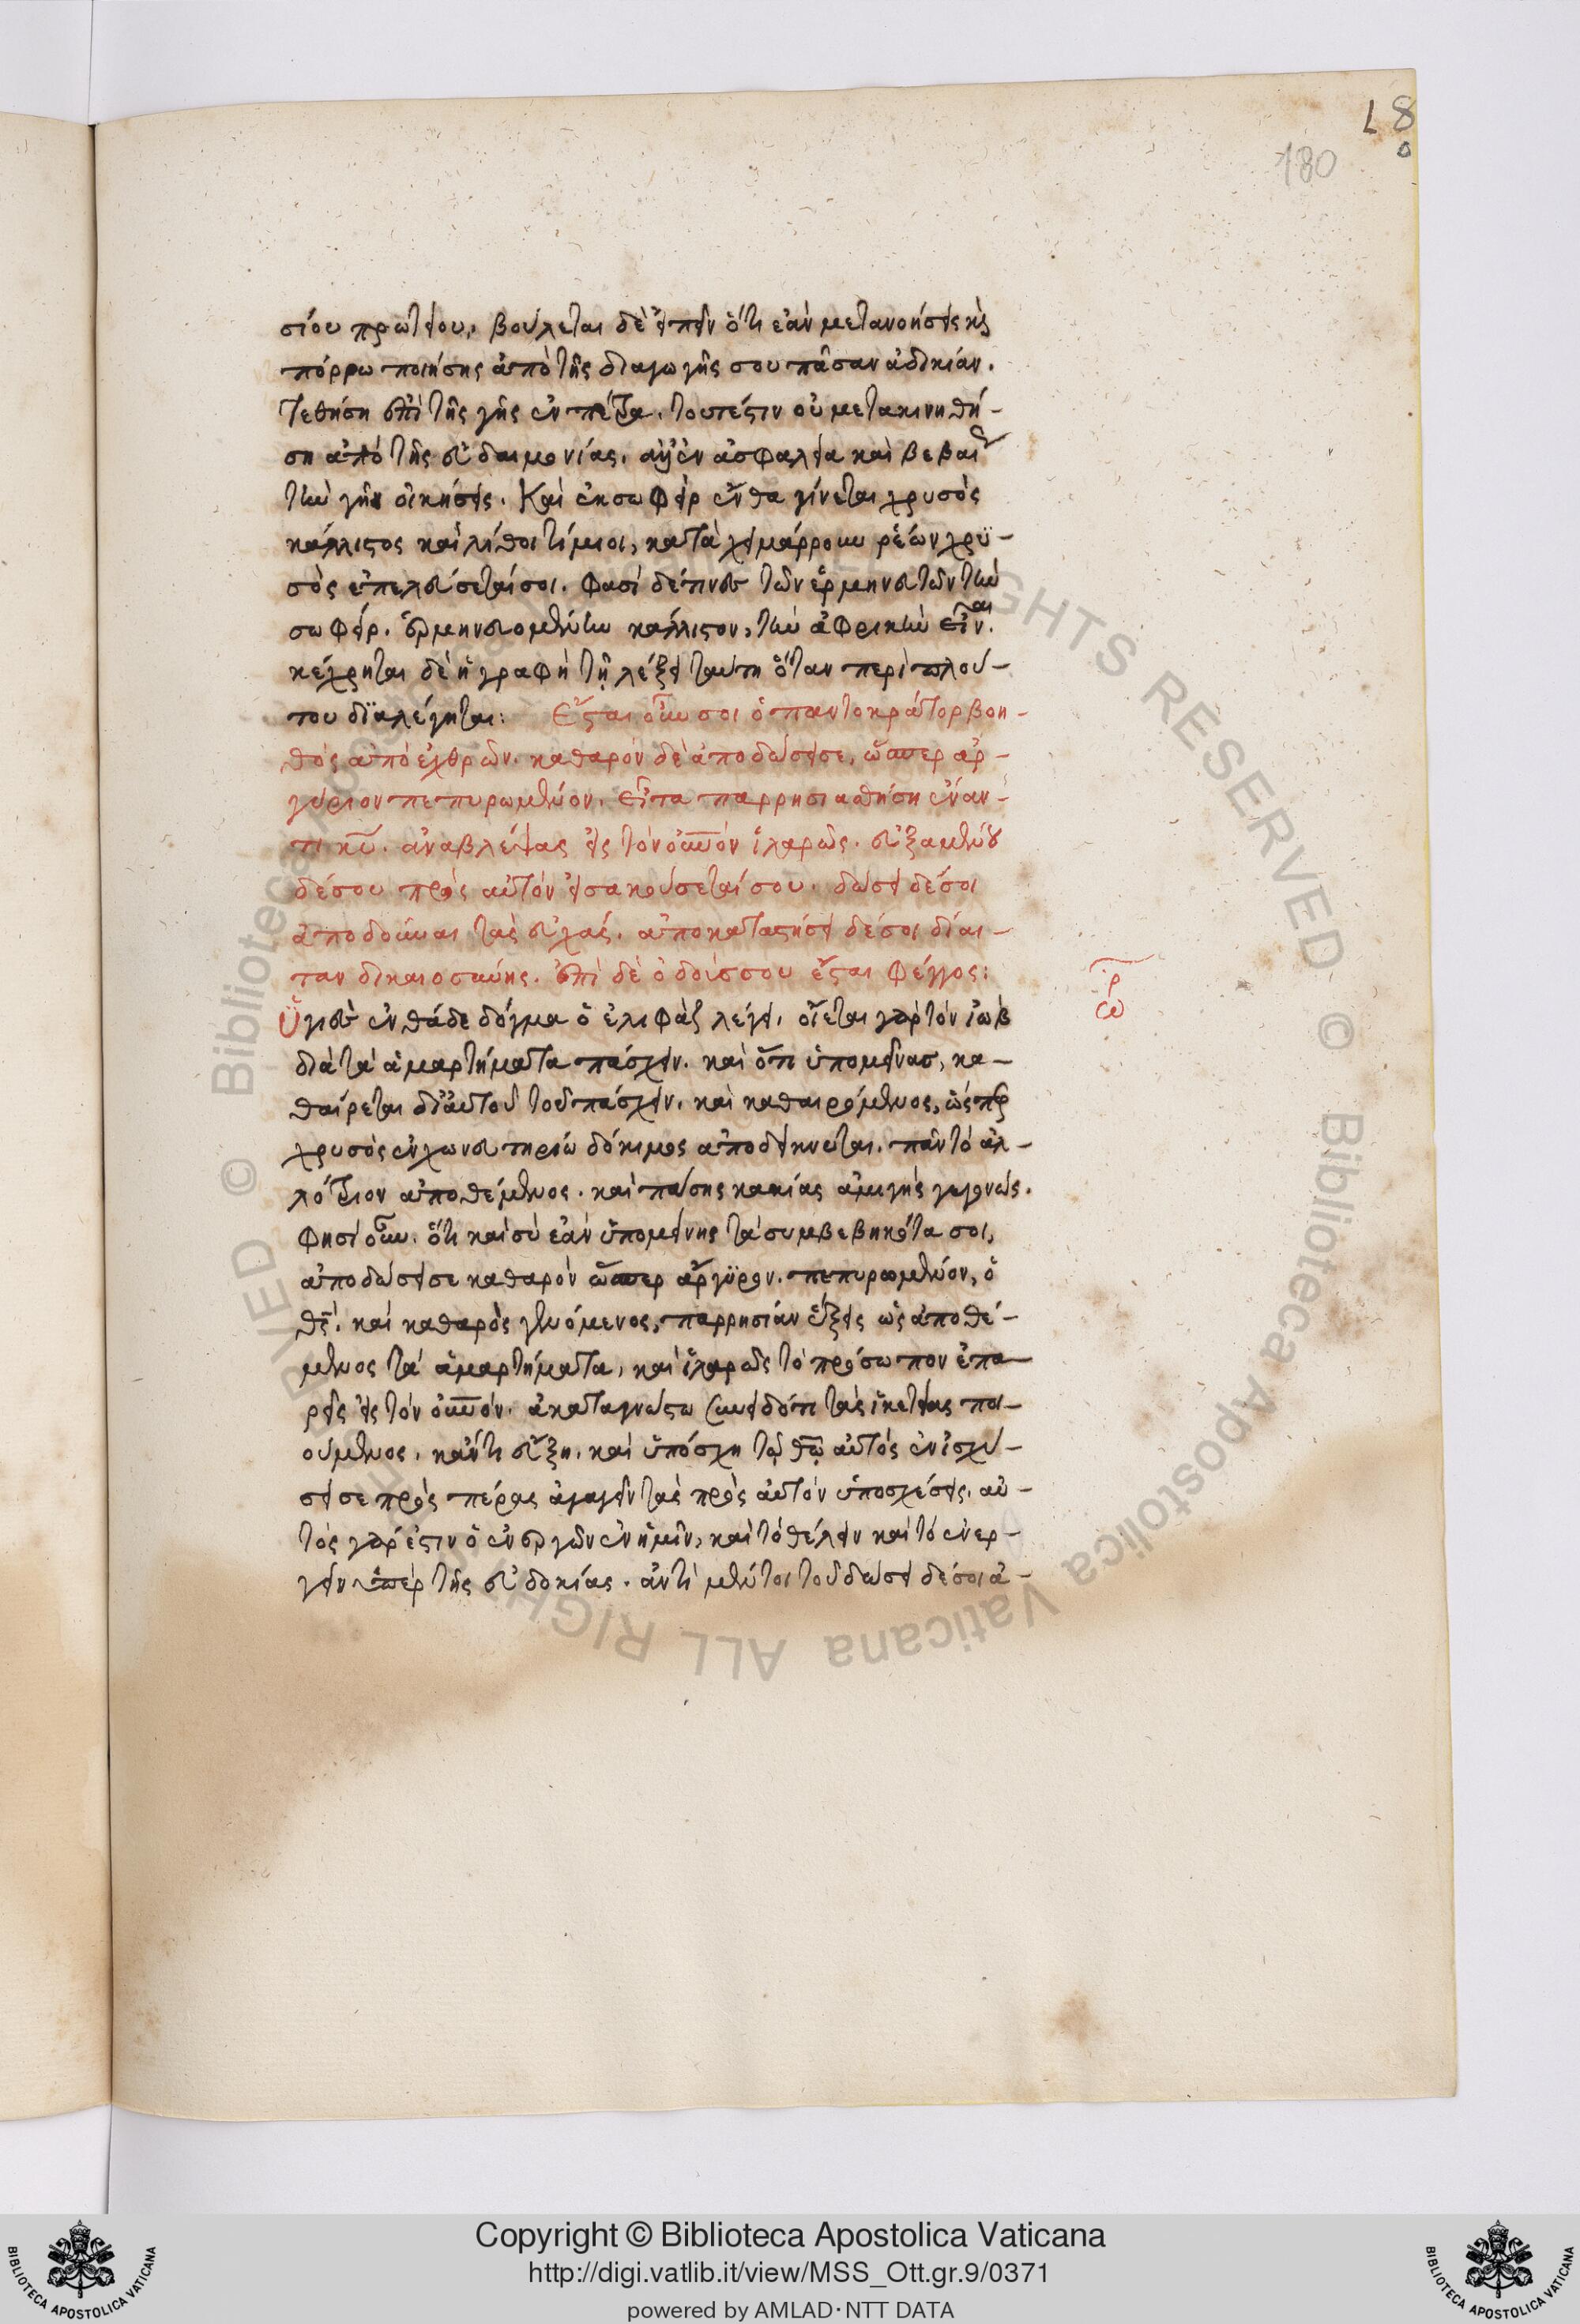 L 8
0
180
σίου πρωτείου. βούλεται δὲ εἰπεῖν ὅτι ἐὰν μετανοήσεις κὶ
πόρρω ποιήσης ἀπὸ τῆς διαγωγῆς σου πᾶσαν ἀδικίαν.
τεθήση ἐπὶ τῆς γῆς ἐν πέτρα. τουτέστιν οὐ μετακινηθή-
ση ἀπὸ τῆς εὐδαιμονίας. ἀλλ' ἐν ἀσφαλεία καὶ βεβαί
τὴν γῆν οἰκήσεις. Καὶ ἐκ σωφεὶρ ἔνθα γίνεται χρυσὸς
κάλλιστος καὶ λίθοι τίμιοι, κατὰ χειμάρρουν ῥέων χρυ-
σὸς ἐπελεύσεταί σοι. φασὶ δέ τινες τῶν ἑρμηνευτῶν τὴν
σωφείρ. ἑρμηνευομένην κάλλιστον, τὴν ἀφρικὴν εἶναι.
κέχρηται δὲ ἡ γραφὴ τῆ λέξει ταύτη ὅταν περὶ πλού-
του διαλέγηται: Ἔσται οὖν σοι ὁ παντοκράτορ βοη-
θὸς ἀπὸ ἐχθρῶν. καθαρὸν δὲ ἀποδώσει σε, ὥσπερ ἀρ-
γύριον πεπυρωμένον. εἶτα παρρησιασθήση ἐναν-
τι κυ. ἀναβλέψας εἰς τὸν οὐνον ἱλαρῶς. εὐξαμένου
δέ σου πρὸς αὐτὸν εἰσακούσεταί σου. δώσει δέ σοι
ἀποδοῦναι τὰς εὐχάς. ἀποκαταστήσει δέ σοι δίαι-
ταν δικαιοσύνης. ἐπὶ δὲ ὁδοῖς σου ἔσται φέγγος:
ὑγιὲς ἐνθάδε δόγμα ὁ ἐλιφὰζ λέγει. οἴεται γὰρ τὸν ἰὼβ
διὰ τὰ ἁμαρτήματα πάσχειν. καὶ ὅτι ὑπομείνας, κα-
θαίρεται δι' αὐτοῦ τοῦ πάσχειν. καὶ καθαιρόμενος, ὥσπερ
χρυσὸς ἐν χωνευτηρίω δόκιμος ἀποδείκνυται. πᾶν τὸ ἀλ-
λότριον ἀποθέμενος. καὶ πάσης κακίας ἀμιγὴς γεγονώς.
φησὶ οὖν. ὅτι καὶ σὺ ἐὰν ὑπομείνης τὰ συμβεβηκότα σοι,
ἀποδώσει σε καθαρὸν ὥσπερ ἄργυρον. πεπυρωμένον, ὁ
θς. καὶ καθαρὸς γενόμενος, παρρησίαν ἕξεις ὡς ἀποθέ-
μενος τὰ ἁμαρτήματα, καὶ ἱλαρῶς τὸ πρόσωπον ἐπα-
ρεῖς εἰς τὸν οὐνον. ἀκαταγνώστω συνειδότι τὰς ἱκετείας ποι-
ούμενος. κἄν τι εὔξη. καὶ ὑπόσχη τῶ θω αὐτὸς ἐνισχύ-
σει σε πρὸς πέρας ἀγαγεῖν τὰς πρὸς αὐτὸν ὑποσχέσεις. αὐ-
τὸς γάρ ἐστιν ὁ ἐνεργῶν ἐν ἡμῖν, καὶ τὸ θέλειν καὶ τὸ ἐνερ-
γεῖν ὑπὲρ τῆς εὐδοκίας. ἀντὶ μέντοι τοῦ δώσει δέ σοι ἀ-
Copyright © Biblioteca Apostolica Vaticana
http://digi.vatlib.it/view/MSS_Ott.gr.9/0371
powered by AMLAD·NTT DATA
BIBLIOTECA APOSTOLICA VATICANA
BIBLIOTECA APOSTOLICA VATICANA
© Biblioteca Apostolica Vaticana ALL RIGHTS RESERVED